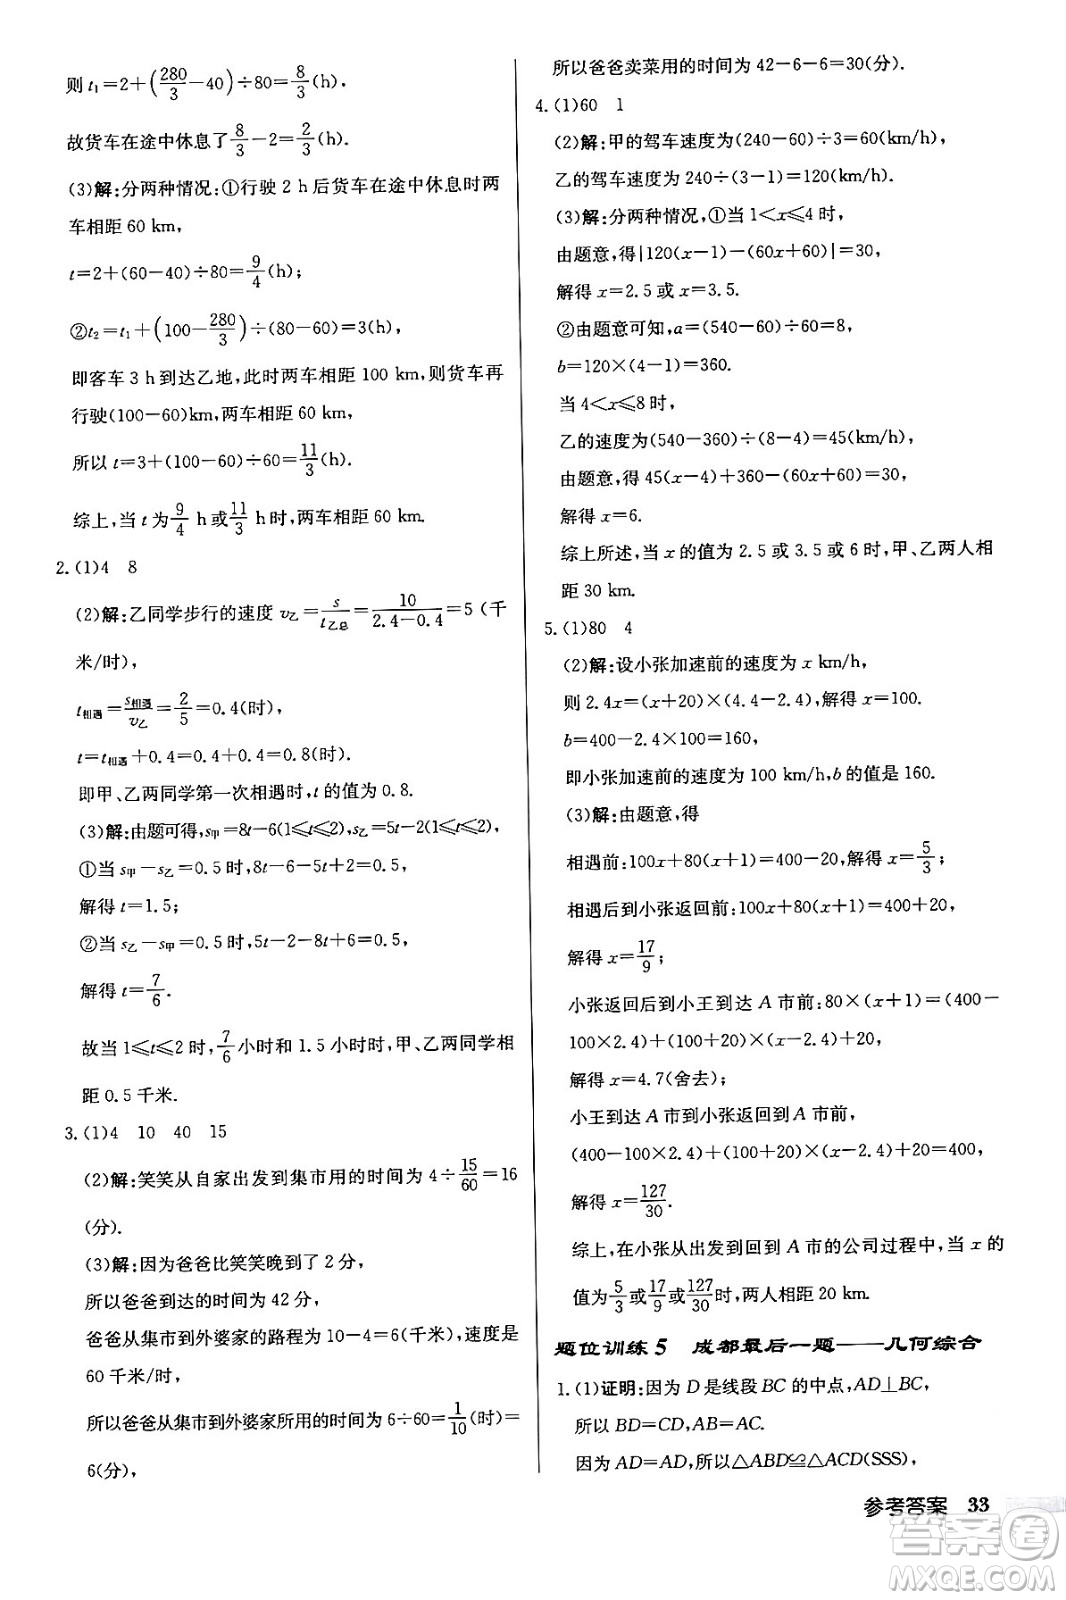 则 t₁=2+(280/3-40)÷80=8/3(h).
故货车在途中休息了8/3-2=2/3(h).
(3)解:分两种情况:①行驶 2 h 后货车在途中休息时两
车相距 60 km,
t=2+(60-40)÷80=9/4(h);
②t₂=t₁+(100-280/3)÷(80-60)=3(h),
即客车 3 h 到达乙地,此时两车相距 100 km,则货车再
行驶(100-60)km,两车相距 60 km,
所以 t=3+(100-60)÷60=11/3(h).
综上,当 t 为9/4 h 或11/3 h 时,两车相距 60 km.
2.(1)4 8
(2)解:乙同学步行的速度 v乙=s/t乙总=10/(2.4-0.4)=5(千
米/时),
t相遇=s相遇/v乙=2/5=0.4(时),
t=t相遇+0.4=0.4+0.4=0.8(时).
即甲、乙两同学第一次相遇时,t 的值为 0.8.
(3)解:由题可得,s甲=8t-6(1⩽t⩽2),s乙=5t-2(1⩽t⩽2),
①当 s甲-s乙=0.5 时,8t-6-5t+2=0.5,
解得 t=1.5;
②当 s乙-s甲=0.5 时,5t-2-8t+6=0.5,
解得 t=7/6.
故当 1⩽t⩽2 时,7/6小时和 1.5 小时时,甲、乙两同学相
距 0.5 千米.
3.(1)4 10 40 15
(2)解:笑笑从自家出发到集市用的时间为 4÷15/60=16
(分).
(3)解:因为爸爸比笑笑晚到了 2 分,
所以爸爸到达的时间为 42 分,
爸爸从集市到外婆家的路程为 10-4=6(千米),速度是
60 千米/时,
所以爸爸从集市到外婆家所用的时间为 6÷60=1/10(时)=
6(分),
所以爸爸卖菜用的时间为 42-6-6=30(分).
4.(1)60 1
(2)解:甲的驾车速度为(240-60)÷3=60(km/h),
乙的驾车速度为 240÷(3-1)=120(km/h).
(3)解:分两种情况,①当 1<x⩽4 时,
由题意,得|120(x-1)-(60x+60)|=30,
解得 x=2.5 或 x=3.5.
②由题意可知,a=(540-60)÷60=8,
b=120×(4-1)=360.
当 4<x⩽8 时,
乙的速度为(540-360)÷(8-4)=45(km/h),
由题意,得 45(x-4)+360-(60x+60)=30,
解得 x=6.
综上所述,当 x 的值为 2.5 或 3.5 或 6 时,甲、乙两人相
距 30 km.
5.(1)80 4
(2)解:设小张加速前的速度为 x km/h,
则 2.4x=(x+20)×(4.4-2.4),解得 x=100.
b=400-2.4×100=160,
即小张加速前的速度为 100 km/h,b 的值是 160.
(3)解:由题意,得
相遇前:100x+80(x+1)=400-20,解得 x=5/3;
相遇后到小张返回前:100x+80(x+1)=400+20,
解得 x=17/9;
小张返回后到小王到达 A 市前:80×(x+1)=(400-
100×2.4)+(100+20)×(x-2.4)+20,
解得 x=4.7(舍去);
小王到达 A 市到小张到达 A 市前,
(400-100×2.4)+(100+20)×(x-2.4)+20=400,
解得 x=127/30.
综上,在小张从出发到回到 A 市的公司过程中,当 x 的
值为5/3或17/9或127/30时,两人相距 20 km.
题位训练5 成都最后一题——几何综合
1.(1)证明:因为 D 是线段 BC 的中点,AD⊥BC,
所以 BD=CD,AB=AC.
因为 AD=AD,所以△ABD≌△ACD(SSS),
参考答案 33
答案圈
MXQE.COM